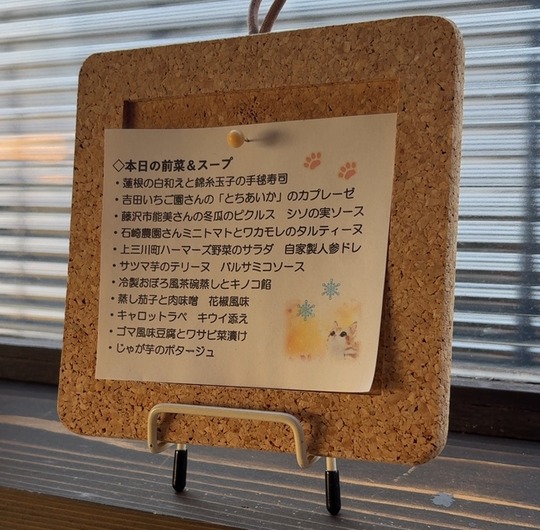 ◇本日の前菜＆スープ
・蓮根の白和えと錦糸玉子の手毬寿司
・吉田いちご園さんの「とちあいか」のカプレーゼ
・藤沢市能美さんの冬瓜のピクルス　シソの実ソース
・石﨑農園さんミニトマトとワカモレのタルティーヌ
・上三川町ハーマーズ野菜のサラダ　自家製人参ドレ
・サツマ芋のテリーヌ　バルサミコソース
・冷製おぼろ風茶碗蒸しとキノコ餡
・蒸し茄子と肉味噌　花椒風味
・キャロットラペ　キウイ添え
・ゴマ風味豆腐とワサビ菜漬け
・じゃが芋のポタージュ